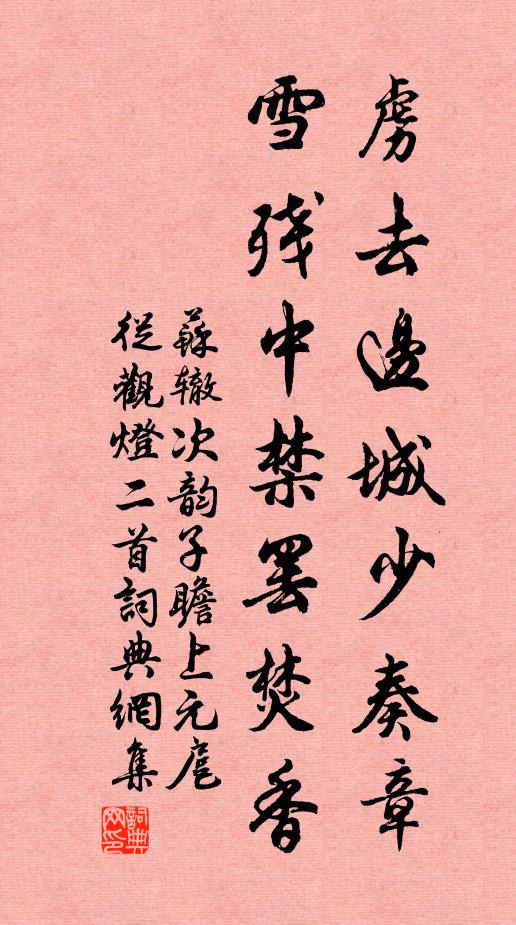 虜去邊城少奏章
雪残中禁罢焚香
蘇辙次韵子瞻上元扈
從觀燈二首詞典網集
詞典网印